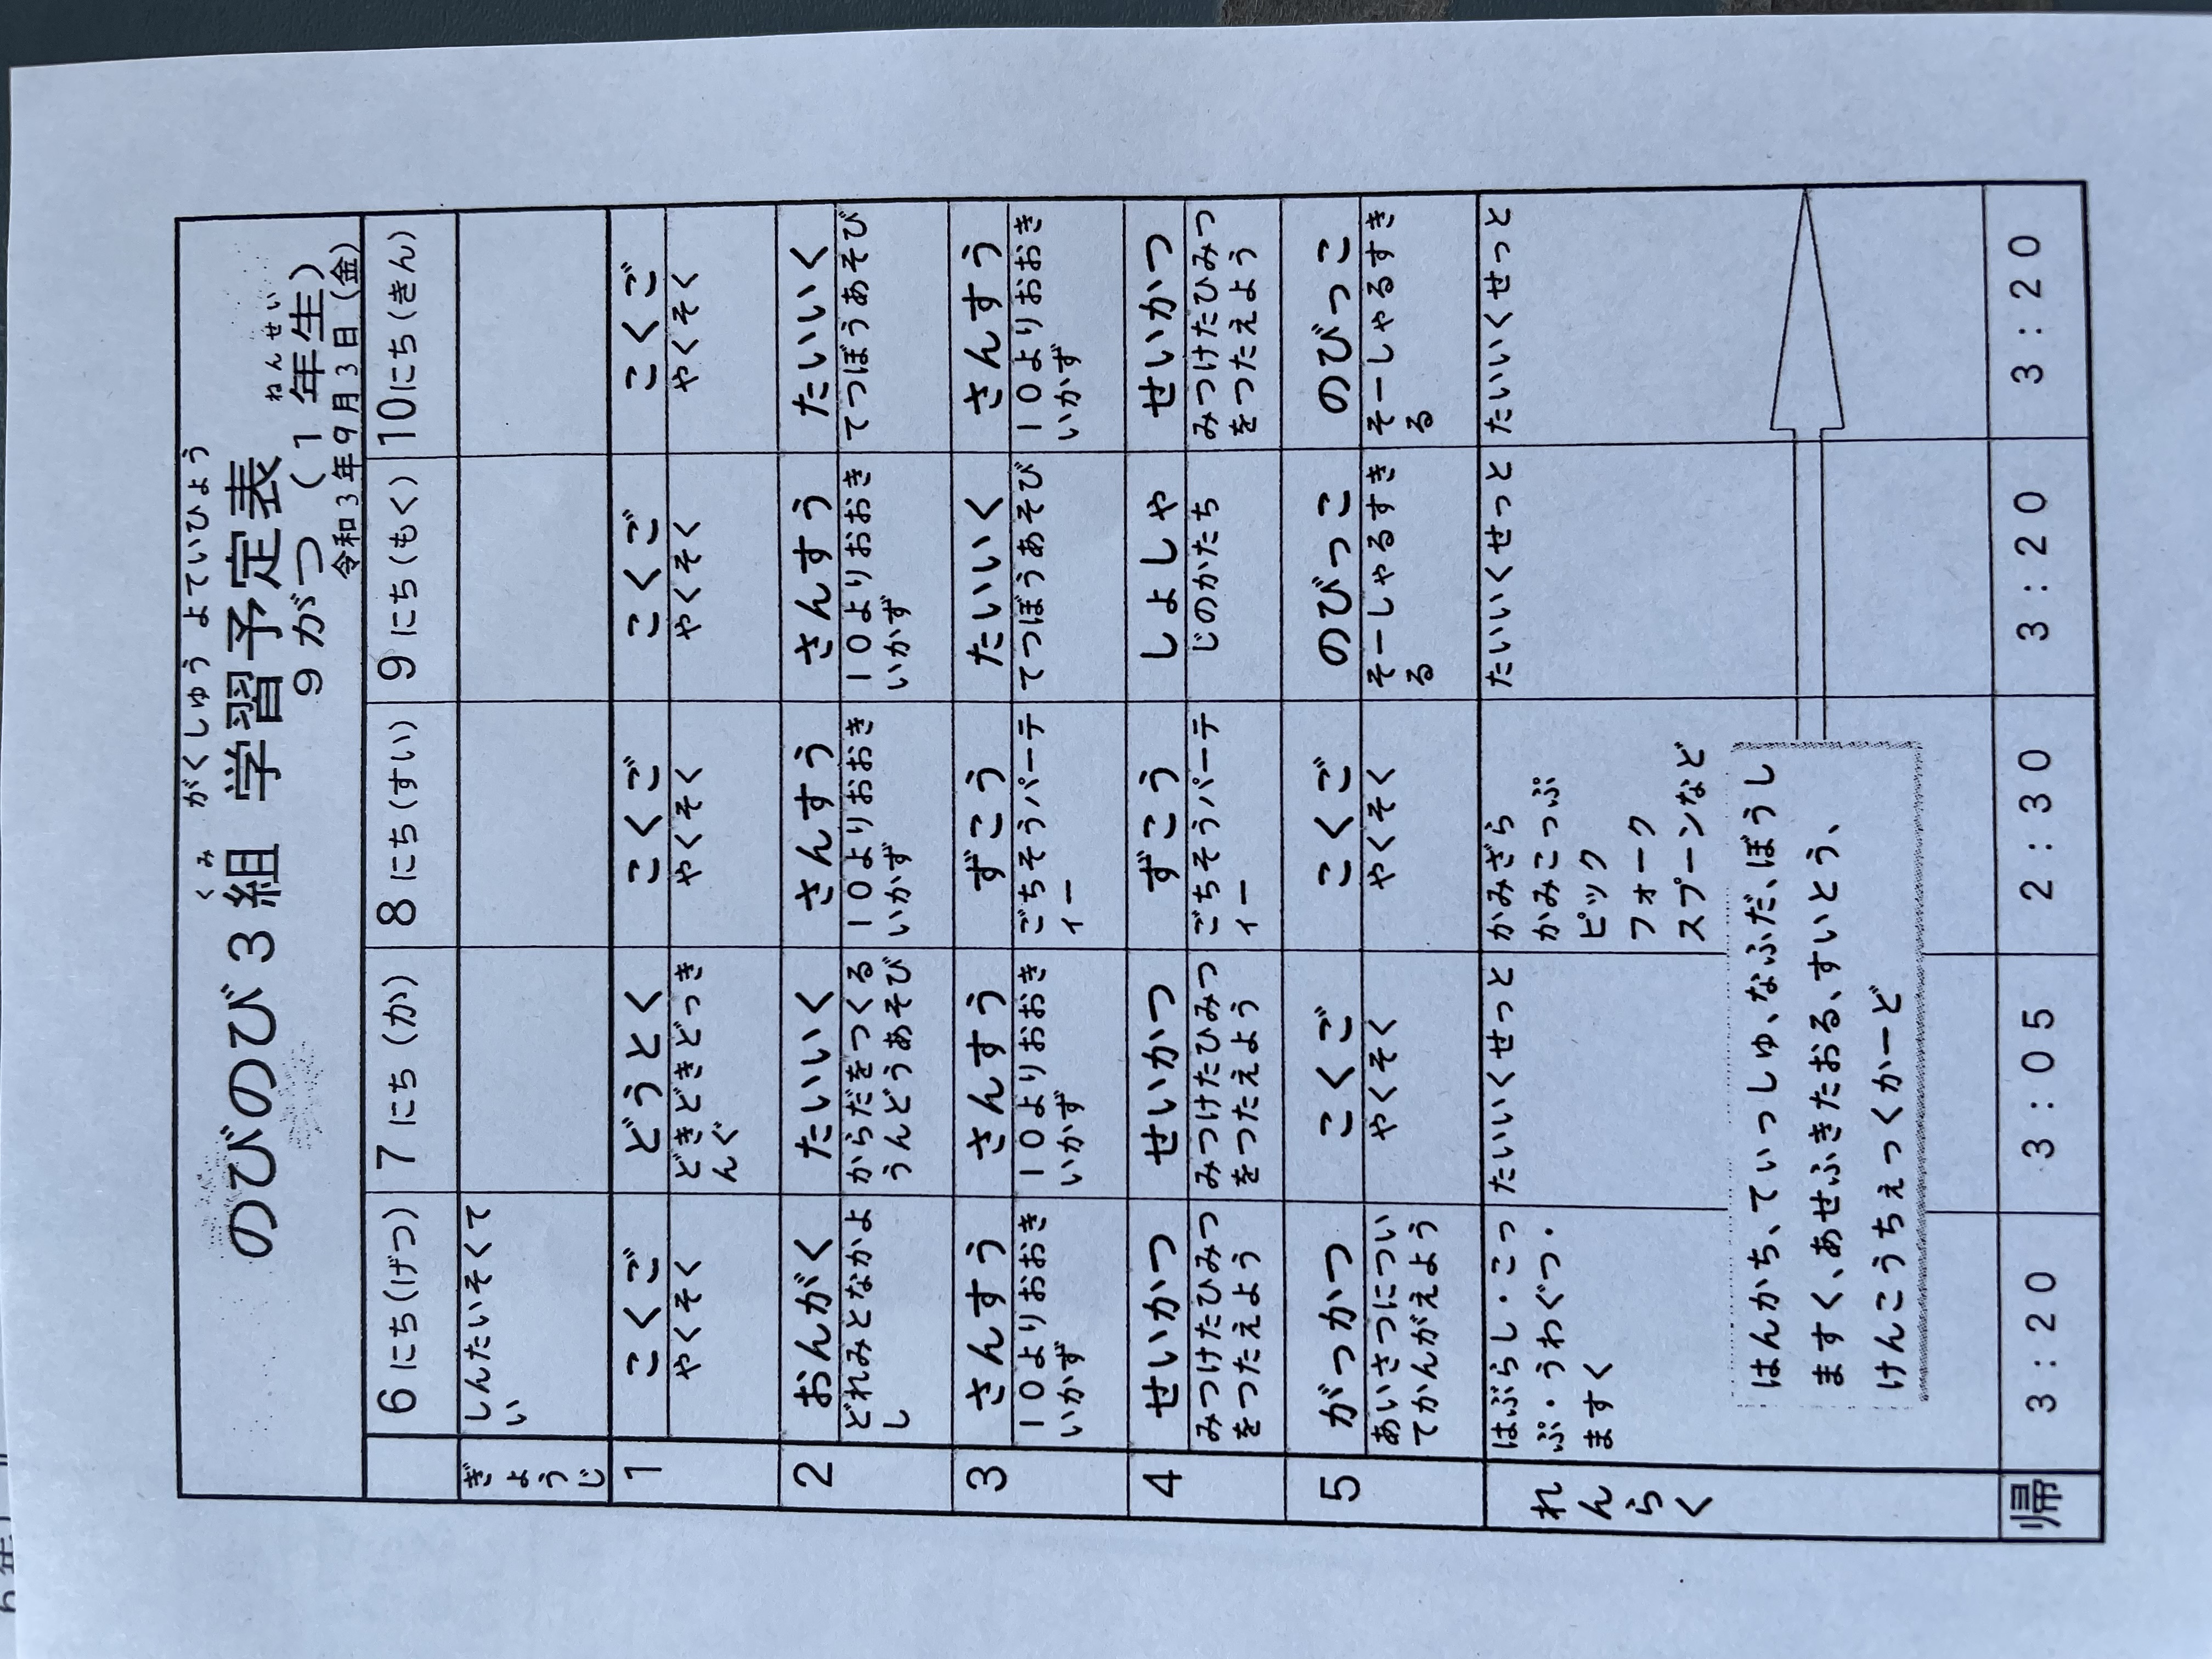 くみ がくしゅう よていひょう
のびのび３組 学習予定表
ねんせい
９がつ（１年生）
令和３年９月３日（金）
6にち(げつ) 7にち(か) 8にち(すい) 9にち(もく) 10にち(きん)
ぎょうじ
しんたいそくて
い
1 こくご どうとく こくご こくご こくご
やくそく
どきどきどっき
んぐ
やくそく
やくそく
やくそく
2 おんがく たいいく さんすう さんすう たいいく
どれみとなかよ
し
からだをつくる
うんどうあそび
１０よりおおき
いかず
１０よりおおき
いかず
てつぼうあそび
3 さんすう さんすう ずこう たいいく さんすう
１０よりおおき
いかず
１０よりおおき
いかず
ごちそうパーテ
ィー
てつぼうあそび
１０よりおおき
いかず
4 せいかつ せいかつ ずこう しょしゃ せいかつ
みつけたひみつ
をつたえよう
みつけたひみつ
をつたえよう
ごちそうパーテ
ィー
じのかたち
みつけたひみつ
をつたえよう
5 がっかつ こくご こくご のびっこ のびっこ
あいさつについ
てかんがえよう
やくそく
やくそく
そーしゃるすき
る
そーしゃるすき
る
れんらく
はぶらし・こっ
ぷ・うわぐつ・
ますく
たいいくせっと
かみざら
かみこっぷ
ピック
フォーク
スプーンなど
たいいくせっと
たいいくせっと
はんかち、ていっしゅ、なふだ、ぼうし
ますく、あせふきたおる、すいとう、
けんこうちぇっくかーど
帰 3:20 3:05 2:30 3:20 3:20